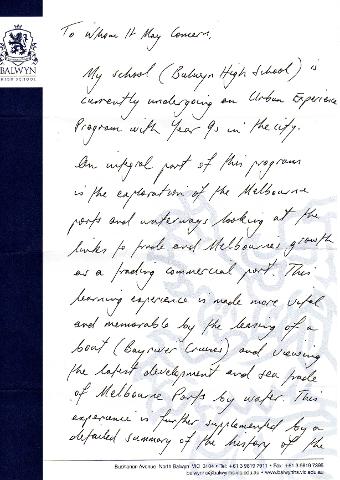 BALWYN
HIGH SCHOOL
To Whom It May Concern,
My school (Balwyn High School) is
currently undergoing an Urban Experience
Program with Year 9s in the city.
An integral part of this program
is the exploration of the Melbourne
ports and waterways looking at the
links to trade and Melbourne's growth
as a trading commercial port. This
learning experience is made more vital
and memorable by the leasing of a
boat (Bayriver Cruises) and viewing
the latest development and sea trade
of Melbourne Ports by water. This
experience is further supplemented by a
detailed summary of the history of the
Buchanan Avenue North Balwyn VIC 3104 • Tel: +61 3 9819 7911 • Fax: +61 3 9819 7395